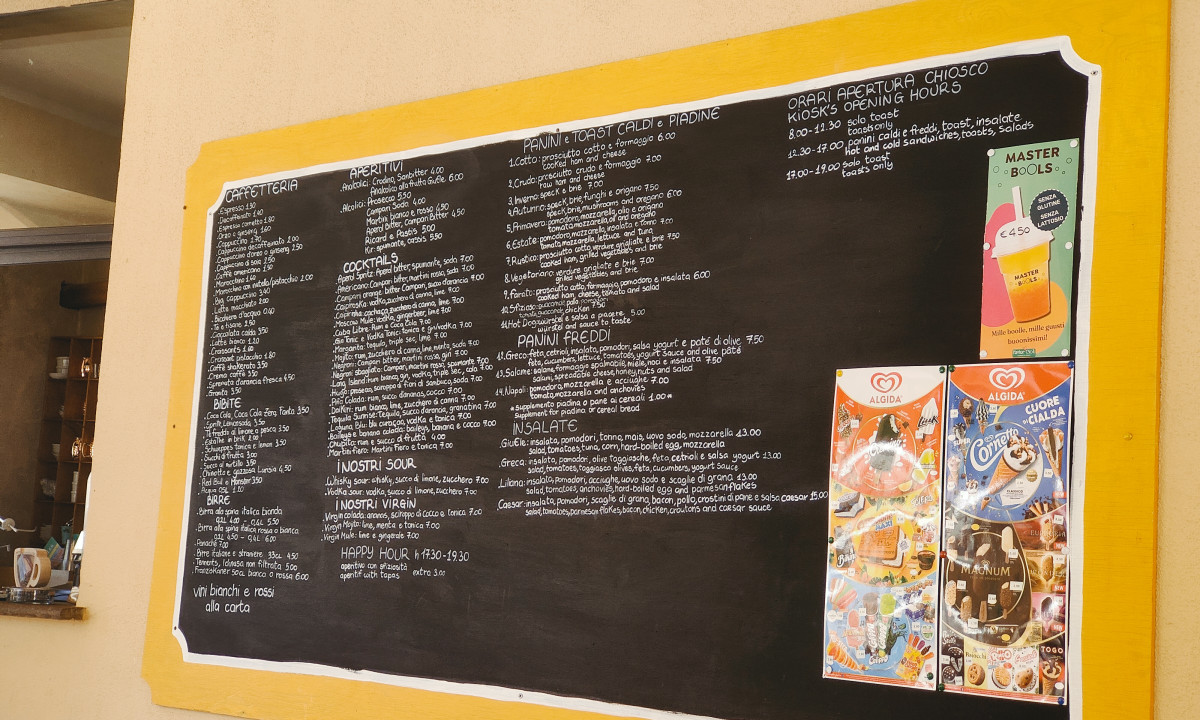 CAFFETTERIA
.Espresso 1.30
.Decaffeinato 1.40
.Espresso corretto 1.80
.Orzo o ginseng 1.60
.Cappuccino 1.70
.Cappuccino decaffeinato 2.00
.Cappuccino d'orzo o ginseng 2.50
.Cappuccino di soia 2.50
.Caffè americano 1.50
.Marocchino 1.60
.Marocchino con nutella/pistacchio 2.00
.Big cappuccino 3.40
.Latte macchiato 2.00
.Bicchiere d'acqua 0.40
.Tè o tisane 2.50
.Cioccolata calda 3.50
.Latte bianco 1.20
.Croissants 1.60
.Croissant pistacchio 1.80
.Caffè shakerato 3.50
.Crema caffè 3.50
.Spremuta d'arancia fresca 4.50
BIBITE
.Coca Cola, Coca Cola Zero, Fanta 3.50
.Sprite, Lemonsoda 3.50
.Tè freddo al limone o pesca 3.50
.Estathe in brik 2.00
.Schweppes tonica e limon 3.50
.Succhi di frutta 3.00
.Succo al mirtillo 3.50
.Chinotto e gazzosa Lurisia 4.50
.Red Bull e Monster 3.50
.Acqua 0.5L 1.20
BIRRE
.Birra alla spina italica bionda
0,2L 4.00 - 0,4L 5.50
.Birra alla spina italica rossa o bianca
0,2L 4.50 - 0,4L 6.00
.Panaché 7.00
.Birre italiane e straniere 33cl 4.50
.Tennents, Ichnusa non filtrata 5.00
.Franziskaner 50cl bianca o rossa 6.00
vini bianchi e rossi
alla carta
APERITIVI
.Analcolici: Crodino, Sanbitter 4.00
Analcolico alla frutta Giufle 6.00
.Alcolici: Prosecco 5.50
Campari Soda 4.00
Martini bianco e rosso 4.50
Aperol Bitter, Campari Bitter 4.50
Ricard e Pastis 5.00
Kir: spumante, cassis 5.50
COCKTAILS
.Aperol Spritz: Aperol bitter, spumante, soda 7.00
.Americano: Campari bitter, martini rosso, soda 7.00
.Campari orange: bitter Campari, succo d'arancia 7.00
.Caipiroska: vodka, zucchero di canna, lime 7.00
.Caipirinha: cachaça, zucchero di canna, lime 7.00
.Moscow Mule: vodka, gingerbeer, lime 7.00
.Cuba Libre: Rum e Coca Cola 7.00
.Gin Tonic e Vodka Tonic: tonica e gin/vodka 7.00
.Margarita: tequila, triple sec, lime 7.00
.Mojito: rum, zucchero di canna, lime, menta, soda 7.00
.Negroni: Campari bitter, martini rosso, gin 7.00
.Negroni sbagliato: Campari, martini rosso, spumante 7.00
.Long Island: rum bianco, gin, vodka, triple sec, cola 7.00
.Hugo: prosecco, sciroppo di fiori di sambuco, soda 7.00
.Piña Colada: rum, succo d'ananas, cocco 7.00
.Daikiri: rum bianco, lime, zucchero di canna 7.00
.Tequila Sunrise: Tequila, succo d'arancia, granatina 7.00
.Laguna Blu: blu curaçao, vodka e tonica 7.00
.Baileys e banana colada: baileys, banana e cocco 7.00
.Chupito: rum e succo di frutta 4.00
.Martini fiero: Martini Fiero e tonica 7.00
I NOSTRI SOUR
.Whisky sour: whisky, succo di limone, zucchero 7.00
.Vodka Sour: vodka, succo di limone, zucchero 7.00
I NOSTRI VIRGIN
.Virgin colada: ananas, sciroppo di cocco e tonica 7.00
.Virgin Mojito: lime, menta e tonica 7.00
.Virgin Mule: lime e gingerale 7.00
HAPPY HOUR h 17.30-19.30
aperitivo con sfiziosità
aperitif with tapas extra 3.00
PANINI e TOAST CALDI e PIADINE
1.Cotto: prosciutto cotto e formaggio 6.00
cooked ham and cheese
2.Crudo: prosciutto crudo e formaggio 7.00
raw ham and cheese
3.Inverno: speck e brie 7.00
4.Autunno: speck, brie, funghi e origano 7.50
speck, brie, mushrooms and oregano
5.Primavera: pomodoro, mozzarella, olio e origano 6.00
tomato, mozzarella, oil and oregano
6.Estate: pomodoro, mozzarella, insalata e tonno 7.00
tomato, mozzarella, lettuce and tuna
7.Rustico: prosciutto cotto, verdure grigliate e brie 7.50
cooked ham, grilled vegetables and brie
8.Vegetariano: verdure grigliate e brie 7.00
grilled vegetables and brie
9.Farcito: prosciutto cotto, formaggio, pomodoro e insalata 6.00
cooked ham, cheese, tomato and salad
10.Sfizioso: 7.50
11.Hot Dog: würstel e salsa a piacere 5.00
würstel and sauce to taste
PANINI FREDDI
12.Greco: feta, cetrioli, insalata, pomodori, salsa yogurt e patè di olive 7.50
feta, cucumbers, lettuce, tomatoes, yogurt sauce and olive pâté
13.Salame: salame, formaggio spalmabile, miele, noci e insalata 7.50
salami, spreadable cheese, honey, nuts and salad
14.Napoli: pomodoro, mozzarella e acciughe 7.00
tomato, mozzarella and anchovies
*Supplemento piadina o pane ai cereali 1.00*
Supplement for piadina or cereal bread
INSALATE
.Giufle: insalata, pomodori, tonno, mais, uovo sodo, mozzarella 13.00
salad, tomatoes, tuna, corn, hard-boiled egg, mozzarella
.Greca: insalata, pomodori, olive taggiasche, feta, cetrioli e salsa yogurt 13.00
salad, tomatoes, taggiasca olives, feta, cucumbers, yogurt sauce
.Liliana: insalata, pomodori, acciughe, uovo sodo e scaglie di grana 13.00
salad, tomatoes, anchovies, hard-boiled egg and parmesan flakes
.Caesar: insalata, pomodori, scaglie di grana, bacon, pollo, crostini di pane e salsa caesar 15.00
salad, tomatoes, parmesan flakes, bacon, chicken, croutons and caesar sauce
ORARI APERTURA CHIOSCO
KIOSK'S OPENING HOURS
8.00-12.30 solo toast
toasts only
12.30-17.00 panini caldi e freddi, toast, insalate
hot and cold sandwiches, toasts, salads
17.00-19.00 solo toast
toasts only
MASTER
BOOLS
SENZA
GLUTINE
SENZA
LATTOSIO
€4.50
MASTER
BOOLS
Mille bolle, mille gusti
buonissimi!
ALGIDA
ALGIDA
CUORE
CIALDA
Cornetto
CLASSICO
MAXI
MAGNUM
Calippo
TOGO